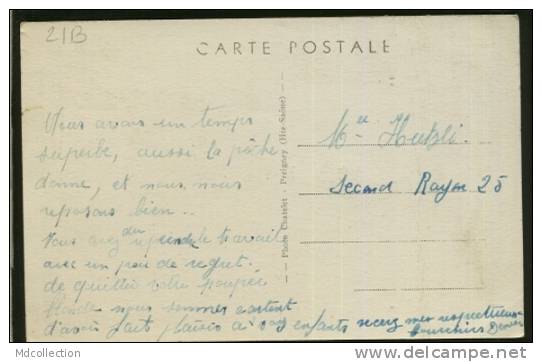 21B
CARTE POSTALE
Nous avons un temps
superbe, aussi la pêche
donne, et nous nous
reposons bien..
Vous avez du reprendre le travail
avec un peu de regret.
de quitter votre poupée
blonde nous sommes content
d'avoir fait plaisir a vos enfants recevez mes respectueux
Photo Chatelet - Perigney (Hte Saône)
Mlle Hubli.
Second Rayon 25
MDcollection
http://www.delcampe.net